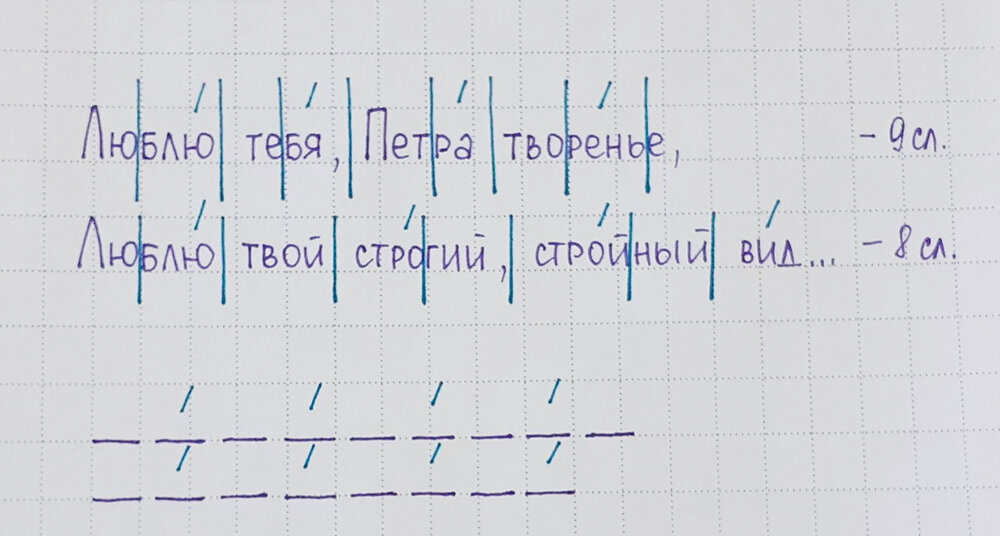 Люблю тебя, Петра творенье, - 9 сл.
Люблю твой строгий, стройный вид... - 8 сл.